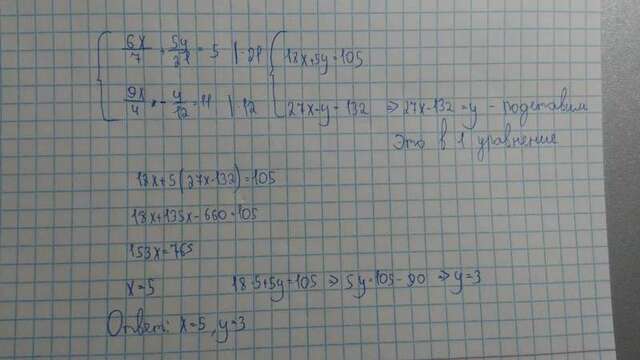 6x/7 + 5y/21 = 5 | · 21 { 18x+5y=105
9x/4 - y/12 = 11 | · 12 27x-y=132 ⇒ 27x-132=y - подставим
это в 1 уравнение
18x+5(27x-132)=105
18x+135x-660=105
153x=765
x=5 18·5+5y=105 ⇒ 5y=105-90 ⇒ y=3
Ответ: x=5, y=3